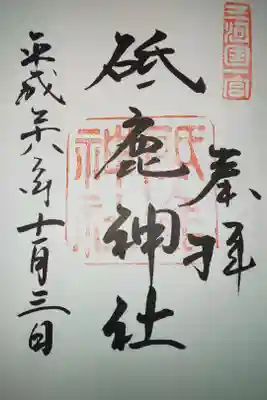 三河国一宮
奉拝
砥鹿神社
平成廿八年十一月三日